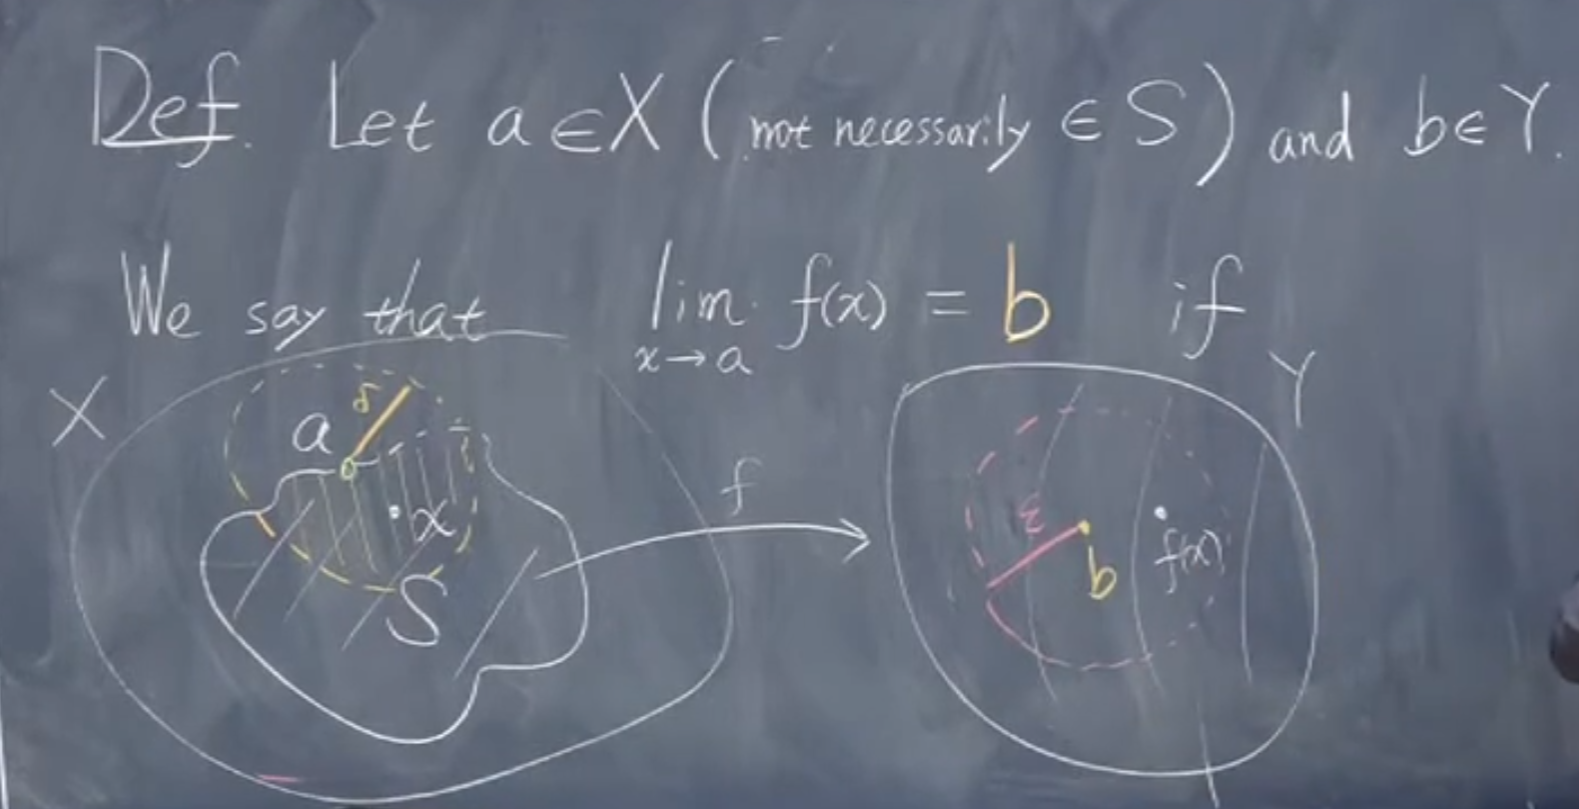 Def. Let a ∈ X ( not necessarily ∈ S ) and b ∈ Y.
We say that lim f(x) = b if
x→a
X
Y
δ
a
f
x
ε
b
f(x)
S